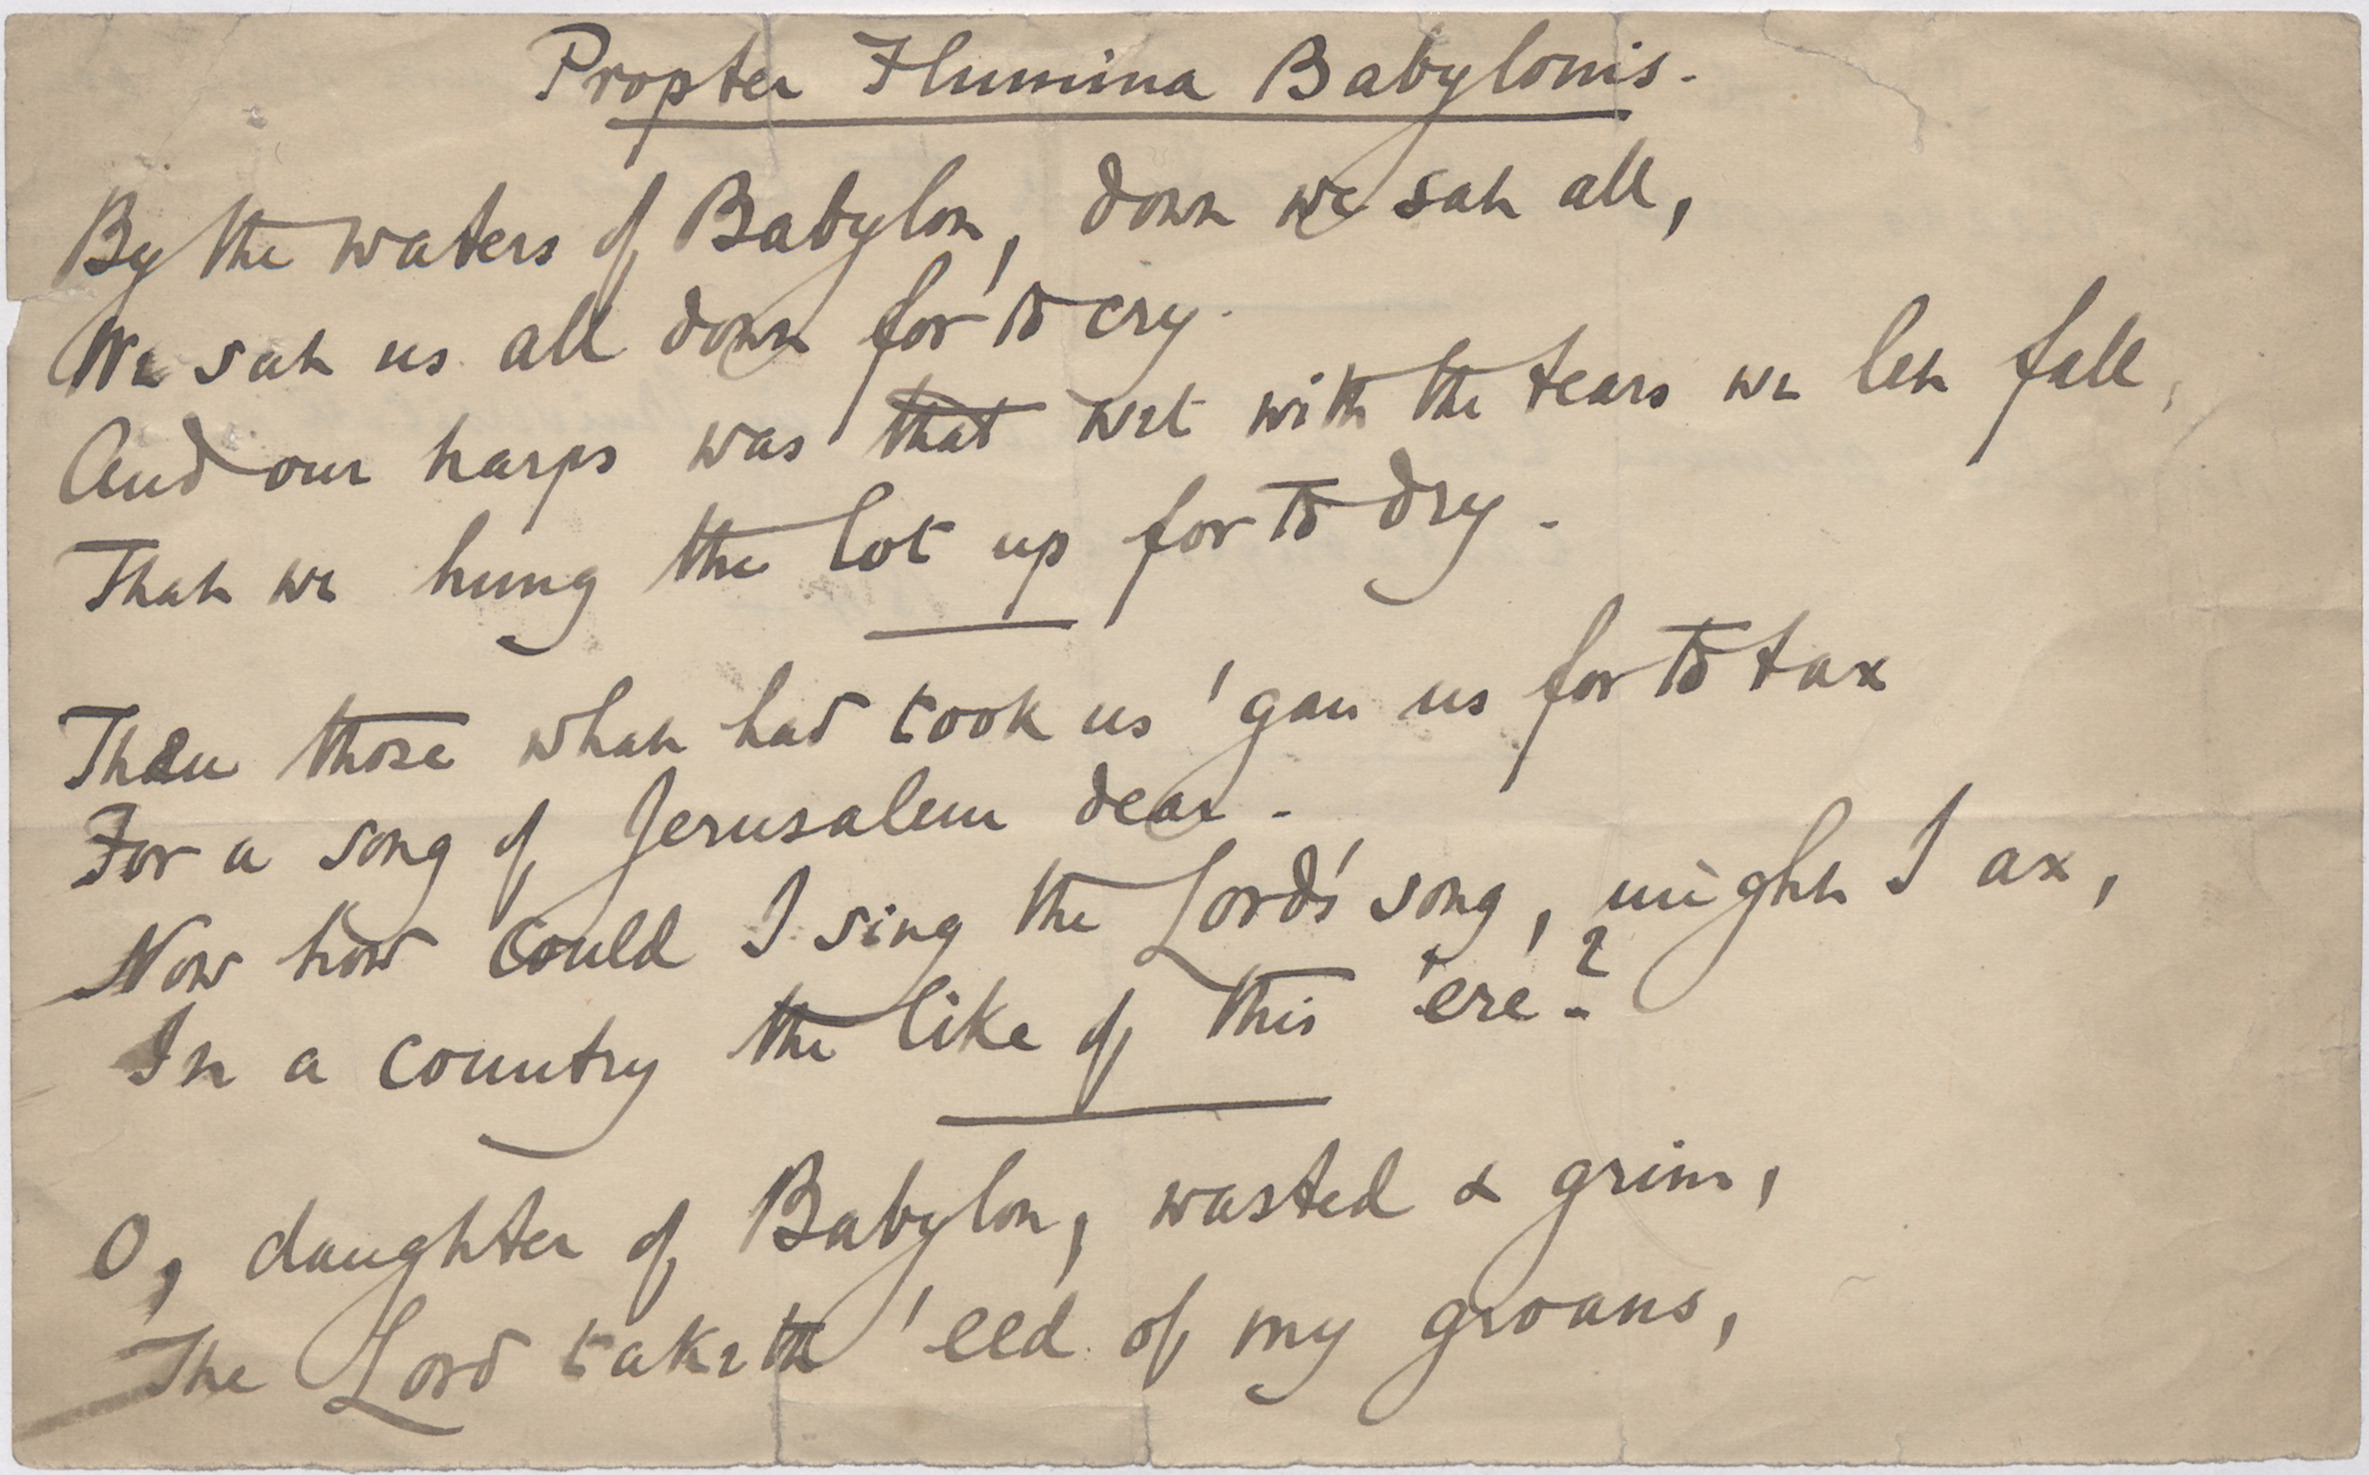 Propter Flumina Babylonis.
By the waters of Babylon, down we sat all,
We sat us all down for to cry.
And our harps was that wet with the tears we let fall,
That we hung the lot up for to dry.
Then those what had took us 'gan us for to tax
For a song of Jerusalem dear.
Now how could I sing the Lord's song, might I ax,
In a country the like of this 'ere?
O, daughter of Babylon, wasted & grim,
The Lord taketh 'eed of my groans,